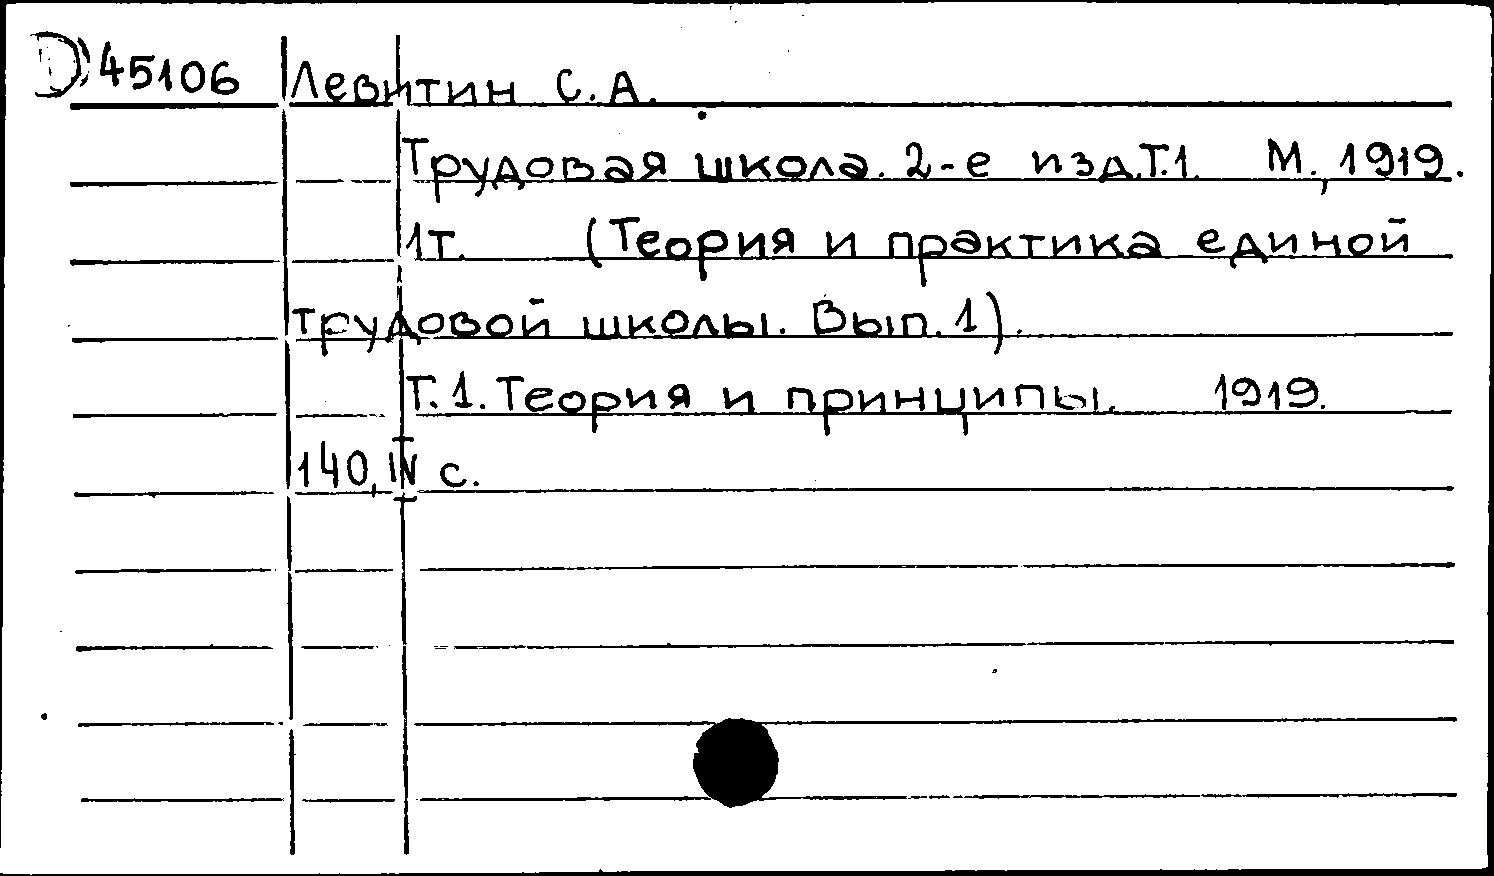 D 45106 Левитин С. А.
Трудовая школа. 2-е изд.Т.1. М., 1919.
1т. (Теория и практика единой
трудовой школы. Вып. 1).
Т. 1. Теория и принципы. 1919.
140, IV с.